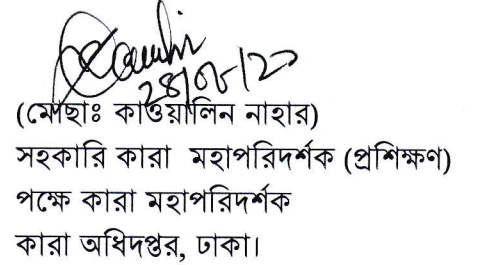 28/06/20
(মোছাঃ কাওয়ালিন নাহার)
সহকারি কারা মহাপরিদর্শক (প্রশিক্ষণ)
পক্ষে কারা মহাপরিদর্শক
কারা অধিদপ্তর, ঢাকা।